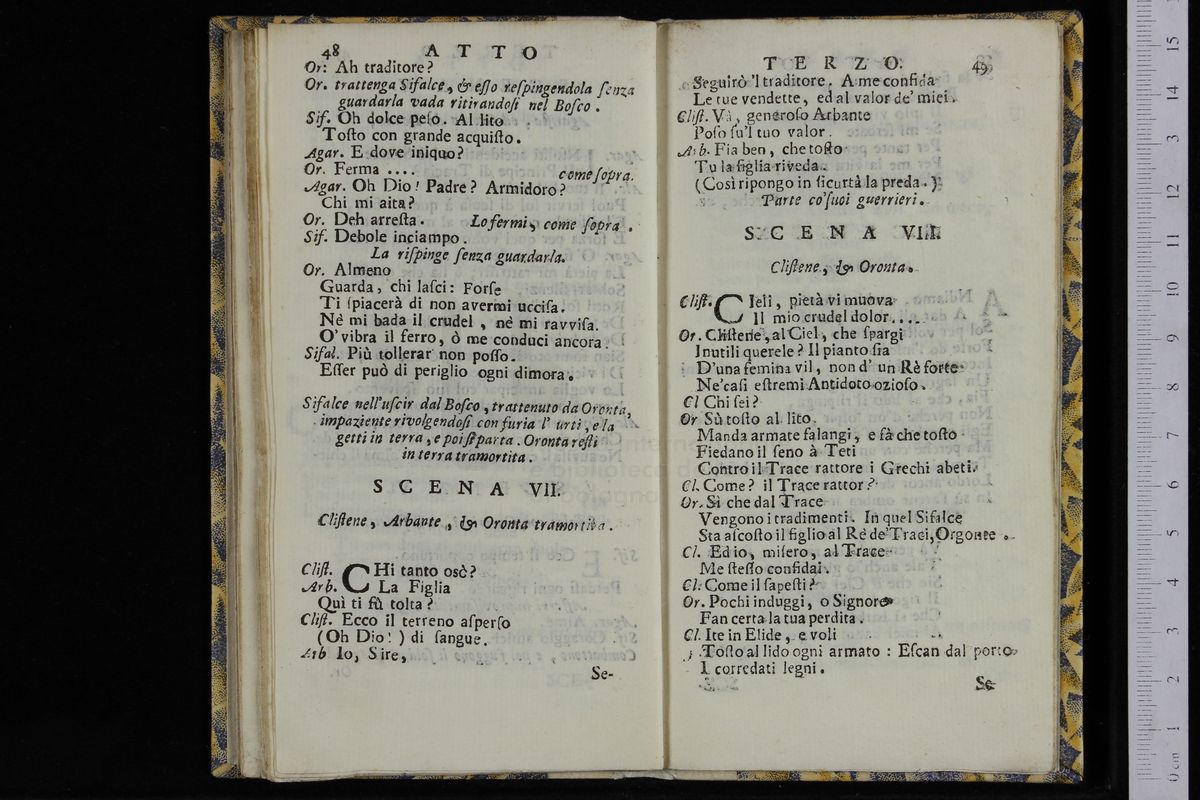 48 A T T O
Or: Ah traditore?
Or. trattenga Sifalce, & eſſo reſpingendola ſenza
guardarla vada ritirandoſi nel Boſco.
Sif. Oh dolce peſo. Al lito
Toſto con grande acquiſto.
Agar. E dove iniquo?
Or. Ferma .... come ſopra.
Agar. Oh Dio! Padre? Armidoro?
Chi mi aita?
Or. Deh arreſta. Lo fermi, come ſopra.
Sif. Debole inciampo.
La riſpinge ſenza guardarla.
Or. Almeno
Guarda, chi laſci: Forſe
Ti ſpiacerà di non avermi ucciſa.
Nè mi bada il crudel, nè mi ravviſa.
O' vibra il ferro, ò me conduci ancora.
Sifal. Più tollerar non poſſo.
Eſſer può di periglio ogni dimora.
Sifalce nell'uſcir dal Boſco, trattenuto da Oronta,
impaziente rivolgendoſi con furia l' urti, e la
getti in terra, e poi ſi parta. Oronta reſti
in terra tramortita.
S C E N A VII.
Cliſtene, Arbante, & Oronta tramortita.
Cliſt. CHi tanto osò?
Arb. La Figlia
Quì ti fù tolta?
Cliſt. Ecco il terreno aſperſo
(Oh Dio!) di ſangue.
Arb Io, Sire,
Se-
T E R Z O. 49
Seguirò 'l traditore. A me confida
Le tue vendette, ed al valor de' miei.
Cliſt. Và, generoſo Arbante
Poſo ſu'l tuo valor.
Arb. Fia ben, che toſto
Tu la figlia riveda.
(Così ripongo in ſicurtà la preda.)
Parte co'ſuoi guerrieri.
S C E N A VIII.
Cliſtene, & Oronta.
Cliſt. CIeli, pietà vi muova
Il mio crudel dolor....
Or. Cliſtene, al Ciel, che ſpargi
Inutili querele? Il pianto ſia
D'una femina vil, non d' un Rè forte
Ne'caſi eſtremi Antidoto ozioſo.
Cl Chi ſei?
Or Sù toſto al lito.
Manda armate falangi, e fà che toſto
Fiedano il ſeno à Teti
Contro il Trace rattore i Grechi abeti.
Cl. Come? il Trace rattor?
Or. Sì che dal Trace
Vengono i tradimenti. In quel Sifalce
Sta aſcoſto il figlio al Rè de'Traci, Orgonte.
Cl. Ed io, miſero, al Trace
Me ſteſſo confidai.
Cl: Come il ſapeſti?
Or. Pochi induggi, o Signore
Fan certa la tua perdita.
Cl. Ite in Elide, e voli
Toſto al lido ogni armato: Eſcan dal porto
I corredati legni.
Se-